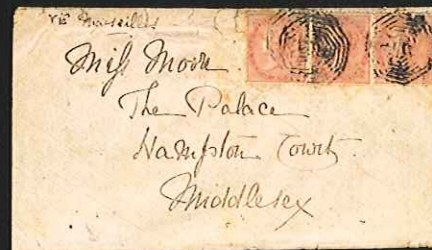 via Marseilles
Miss Moore
The Palace
Hampton Court
Middlesex